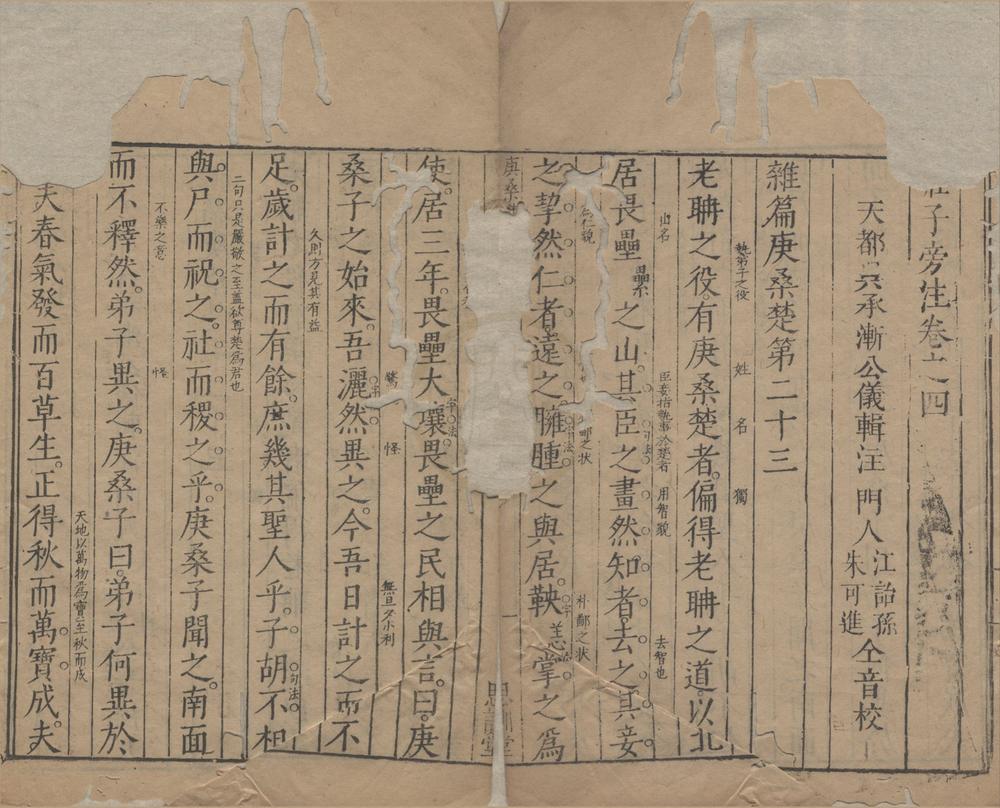 子旁注卷之四
天都吳承漸公儀輯注 門人 江詒孫 朱可進 仝音校
雜篇庚桑楚第二十三
執弟子之役 姓 名 獨
老聃之役有庚桑楚者偏得老聃之道以北
山名 臣妾指執事於楚者 用智貌 去智也
居畏壘纍之山其臣之畫然知者去之其妾
仁貌 鄙之狀 朴鄙之狀
之挈然仁者遠之臃腫之與居鞅恙掌之為
庚桑
思訓堂
使居三年畏壘大壤字法畏壘之民相與言曰庚
驚 怪 無旦夕小利
桑子之始來吾灑然異之今吾日計之而不
久則方見其有益
足歲計之而有餘庶幾其聖人乎子胡不相
句法
二句只是嚴敬之至蓋欲尊楚為君也
與尸而祝之社而稷之乎庚桑子聞之南面
不樂之意 怪
而不釋然弟子異之庚桑子曰弟子何異於
天地以萬物為寶至秋而成
夫春氣發而百草生正得秋而萬寶成夫